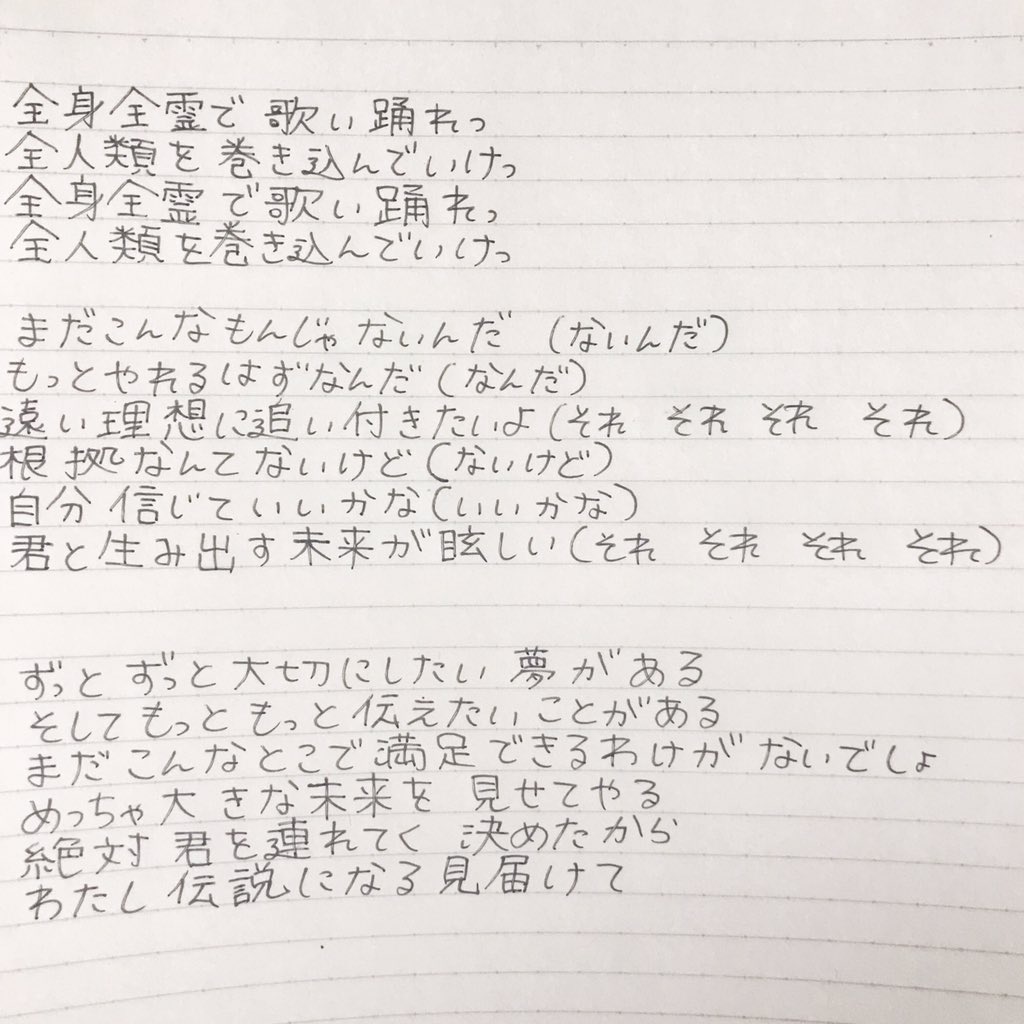 全身全霊で歌い踊れっ
全人類を巻き込んでいけっ
全身全霊で歌い踊れっ
全人類を巻き込んでいけっ
まだこんなもんじゃないんだ (ないんだ)
もっとやれるはずなんだ (なんだ)
遠い理想に追い付きたいよ (それ それ それ それ)
根拠なんてないけど (ないけど)
自分信じていいかな (いいかな)
君と生み出す未来が眩しい (それ それ それ それ)
ずっと ずっと 大切にしたい 夢がある
そして もっと もっと 伝えたいことがある
まだ こんなとこで 満足できるわけが ないでしょ
めっちゃ 大きな未来を 見せてやる
絶対 君を連れてく 決めたから
わたし 伝説になる 見届けて